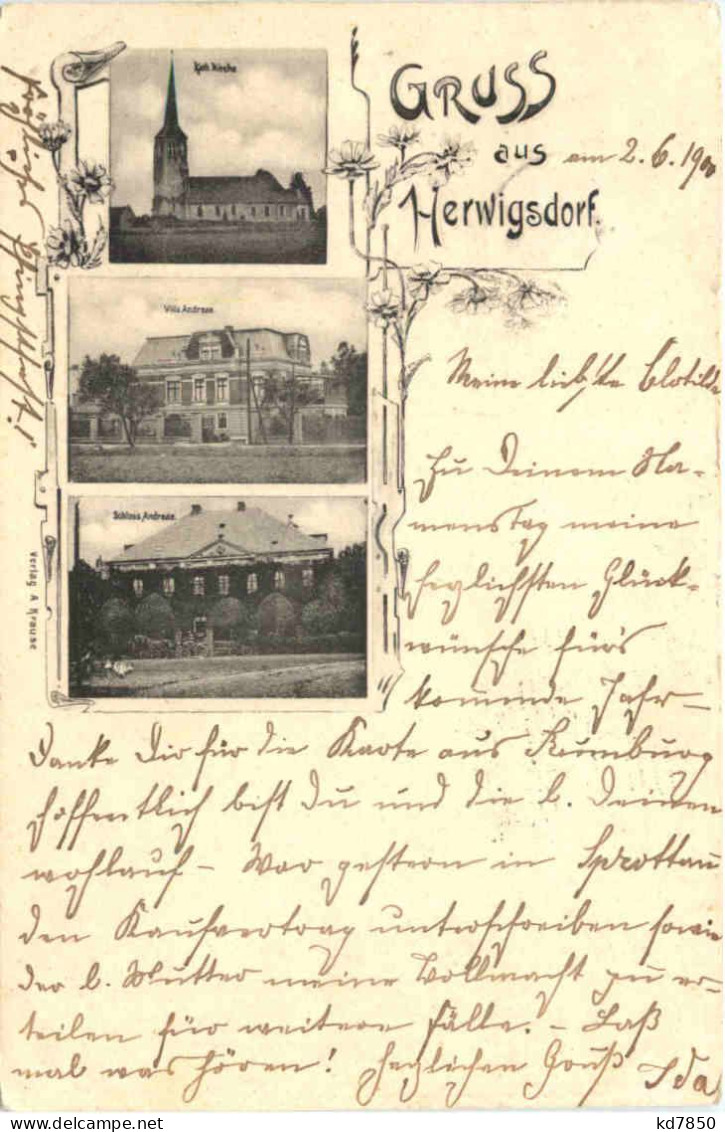 Kath. Kirche
GRUSS
aus
Herwigsdorf.
am 2.6.1900
Villa Andreae
Schloss Andreae.
Verlag A Krause
Meine liebste Clotilde
Zu Deinem Na-
menstag meine
herzlichsten Glück-
wünsche für's
kommende Jahr –
Danke Dir für die Karte aus Rumburg
hoffentlich bist Du und die l. Deinen
wohlauf – War gestern in Sprottau
den Kaufvertrag unterschreiben sowie
der l. Mutter meine Vollmacht zu er-
teilen für weitere Fälle. – Laß
mal was hören! Herzlichen Gruß
Ida
Fröhliche
Pfingsten!
kd7850